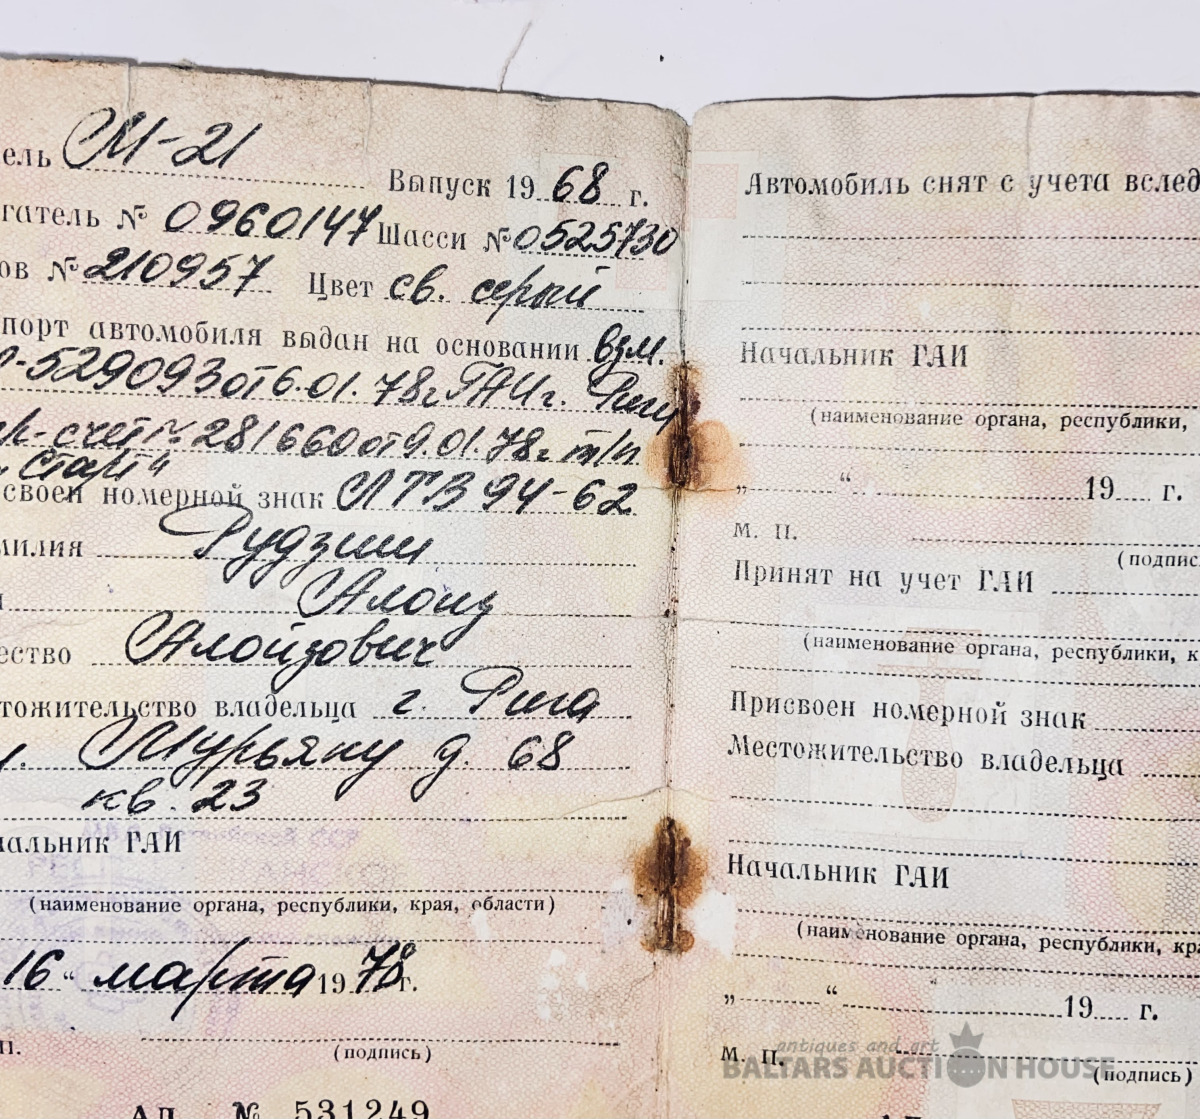 ель М-21 Выпуск 1968 г.
гатель № 0960147 Шасси № 0525730
ов № 210957 Цвет св. серый
порт автомобиля выдан на основании взм.
-529093 от 6.01.78г ГАИ г. Риги
к-счет № 281660 от 9.01.78г т/п
„Старт"
своен номерной знак ЛТВ 94-62
милия Рудзит
Алоиз
ество Алойзович
тожительство владельца г. Рига
л. Мурьяну д. 68
кв. 23
чальник ГАИ
(наименование органа, республики, края, области)
16 “ марта 1978г.
п.
(подпись)
АП № 531249
Автомобиль снят с учета вслед
Начальник ГАИ
(наименование органа, республики,
„ “ 19 г.
М. П.
(подпис
Принят на учет ГАИ
(наименование органа, республики, к
Присвоен номерной знак
Местожительство владельца
Начальник ГАИ
(наименование органа, республики, кра
„ “ 19 г.
М. П.
(подпись)
antiques and art
BALTARS AUCTION HOUSE